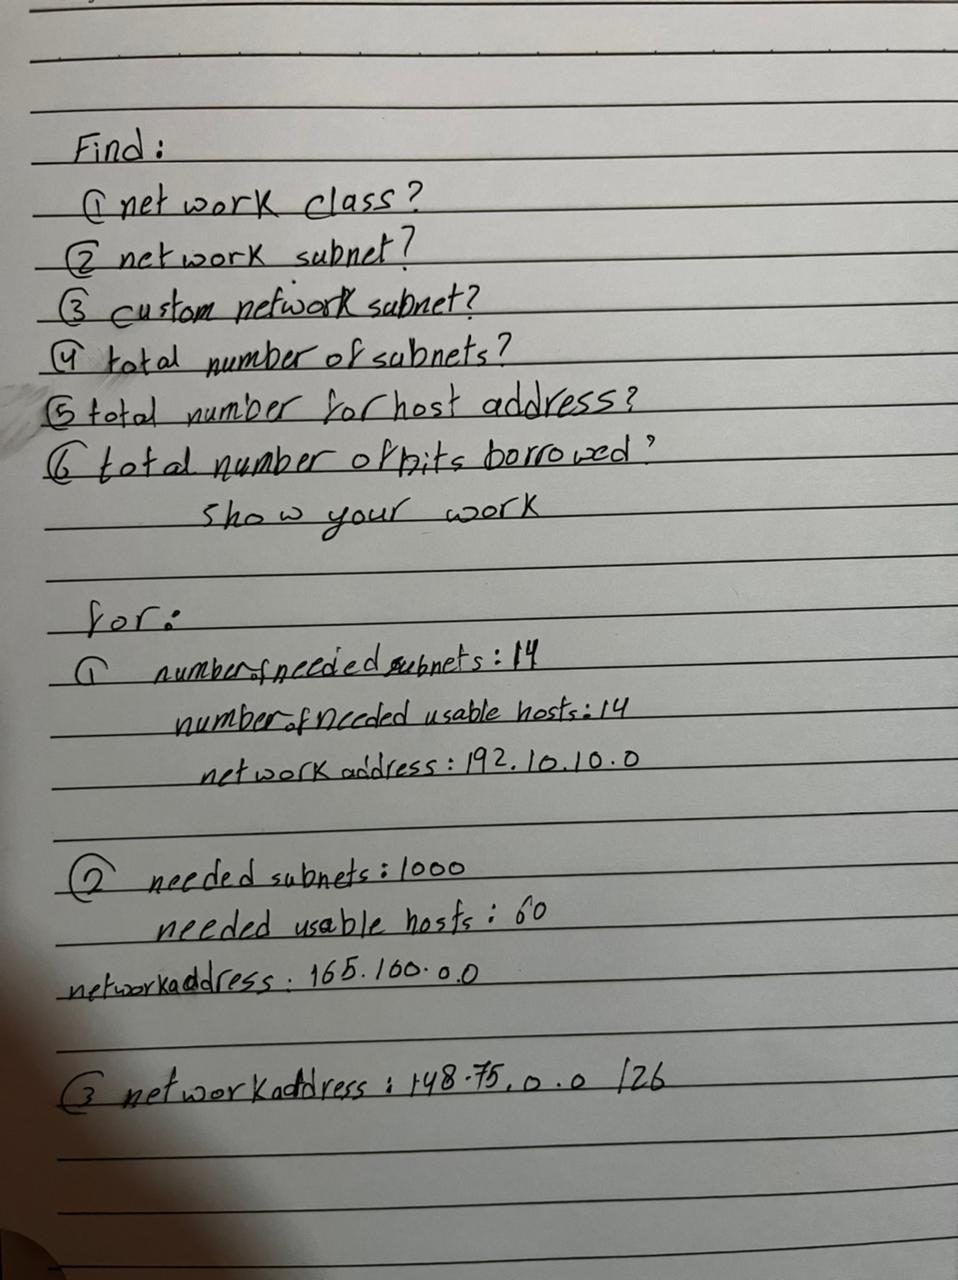 Find:
① network class?
② network subnet?
③ custom network subnet?
④ total number of subnets?
⑤ total number for host address?
⑥ total number of bits borrowed?
show your work
for:
① number of needed subnets: 14
number of needed usable hosts: 14
network address: 192.10.10.0
② needed subnets: 1000
needed usable hosts: 60
network address: 165.100.0.0
③ network address: 148.75.0.0 /26